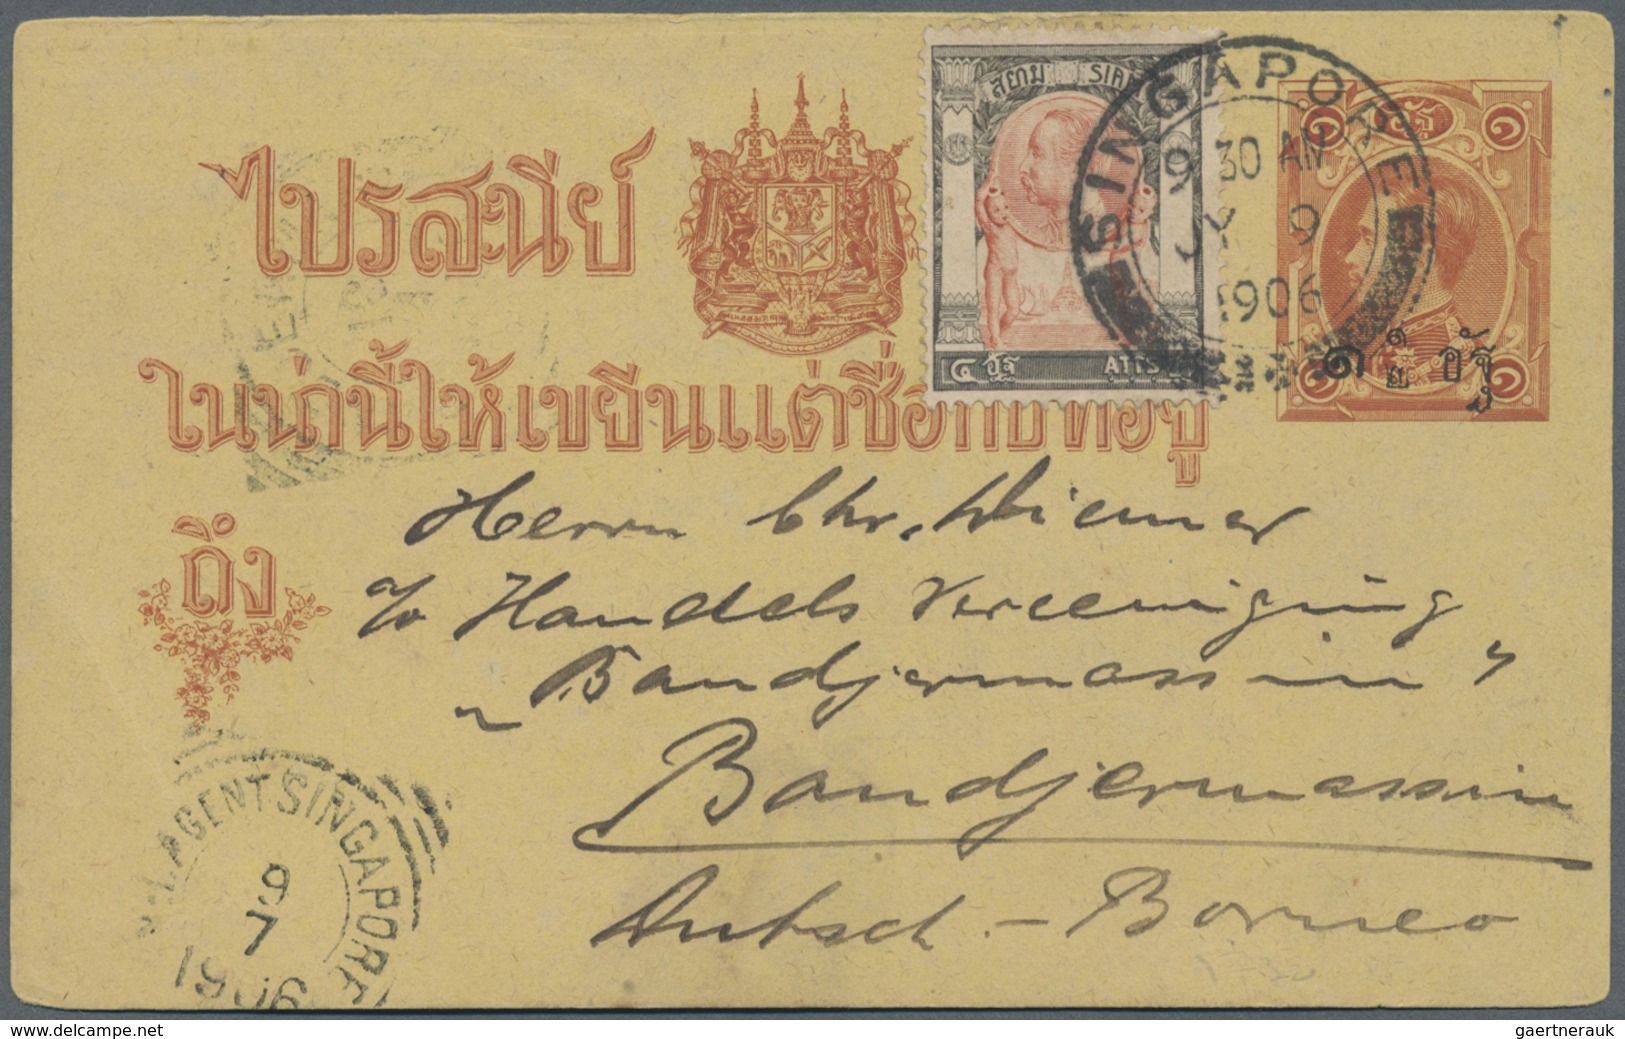 สยาม SIAM
SINGAPORE
9 30 AM
JY 9
1906
ไปรสนีย์
๑ ๑
๔ อัฐ ATTS
๑ ๑
ในน่านี้ให้เขยีนแต่ชื่อกับที่อยู่
ถึง
Herrn Chr. Wiemer
c/o Handels Vereeniging
"Bandjermassin"
Bandjermassin
Dutsch-Borneo
AGENT SINGAPORE
9
7
1906
delcampe.net
gaertnerauk